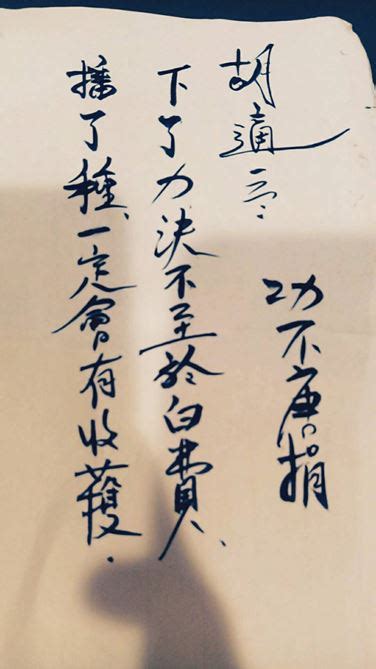 功不唐捐
胡適言：
下了力決不至於白費、
播了種、一定會有收穫.